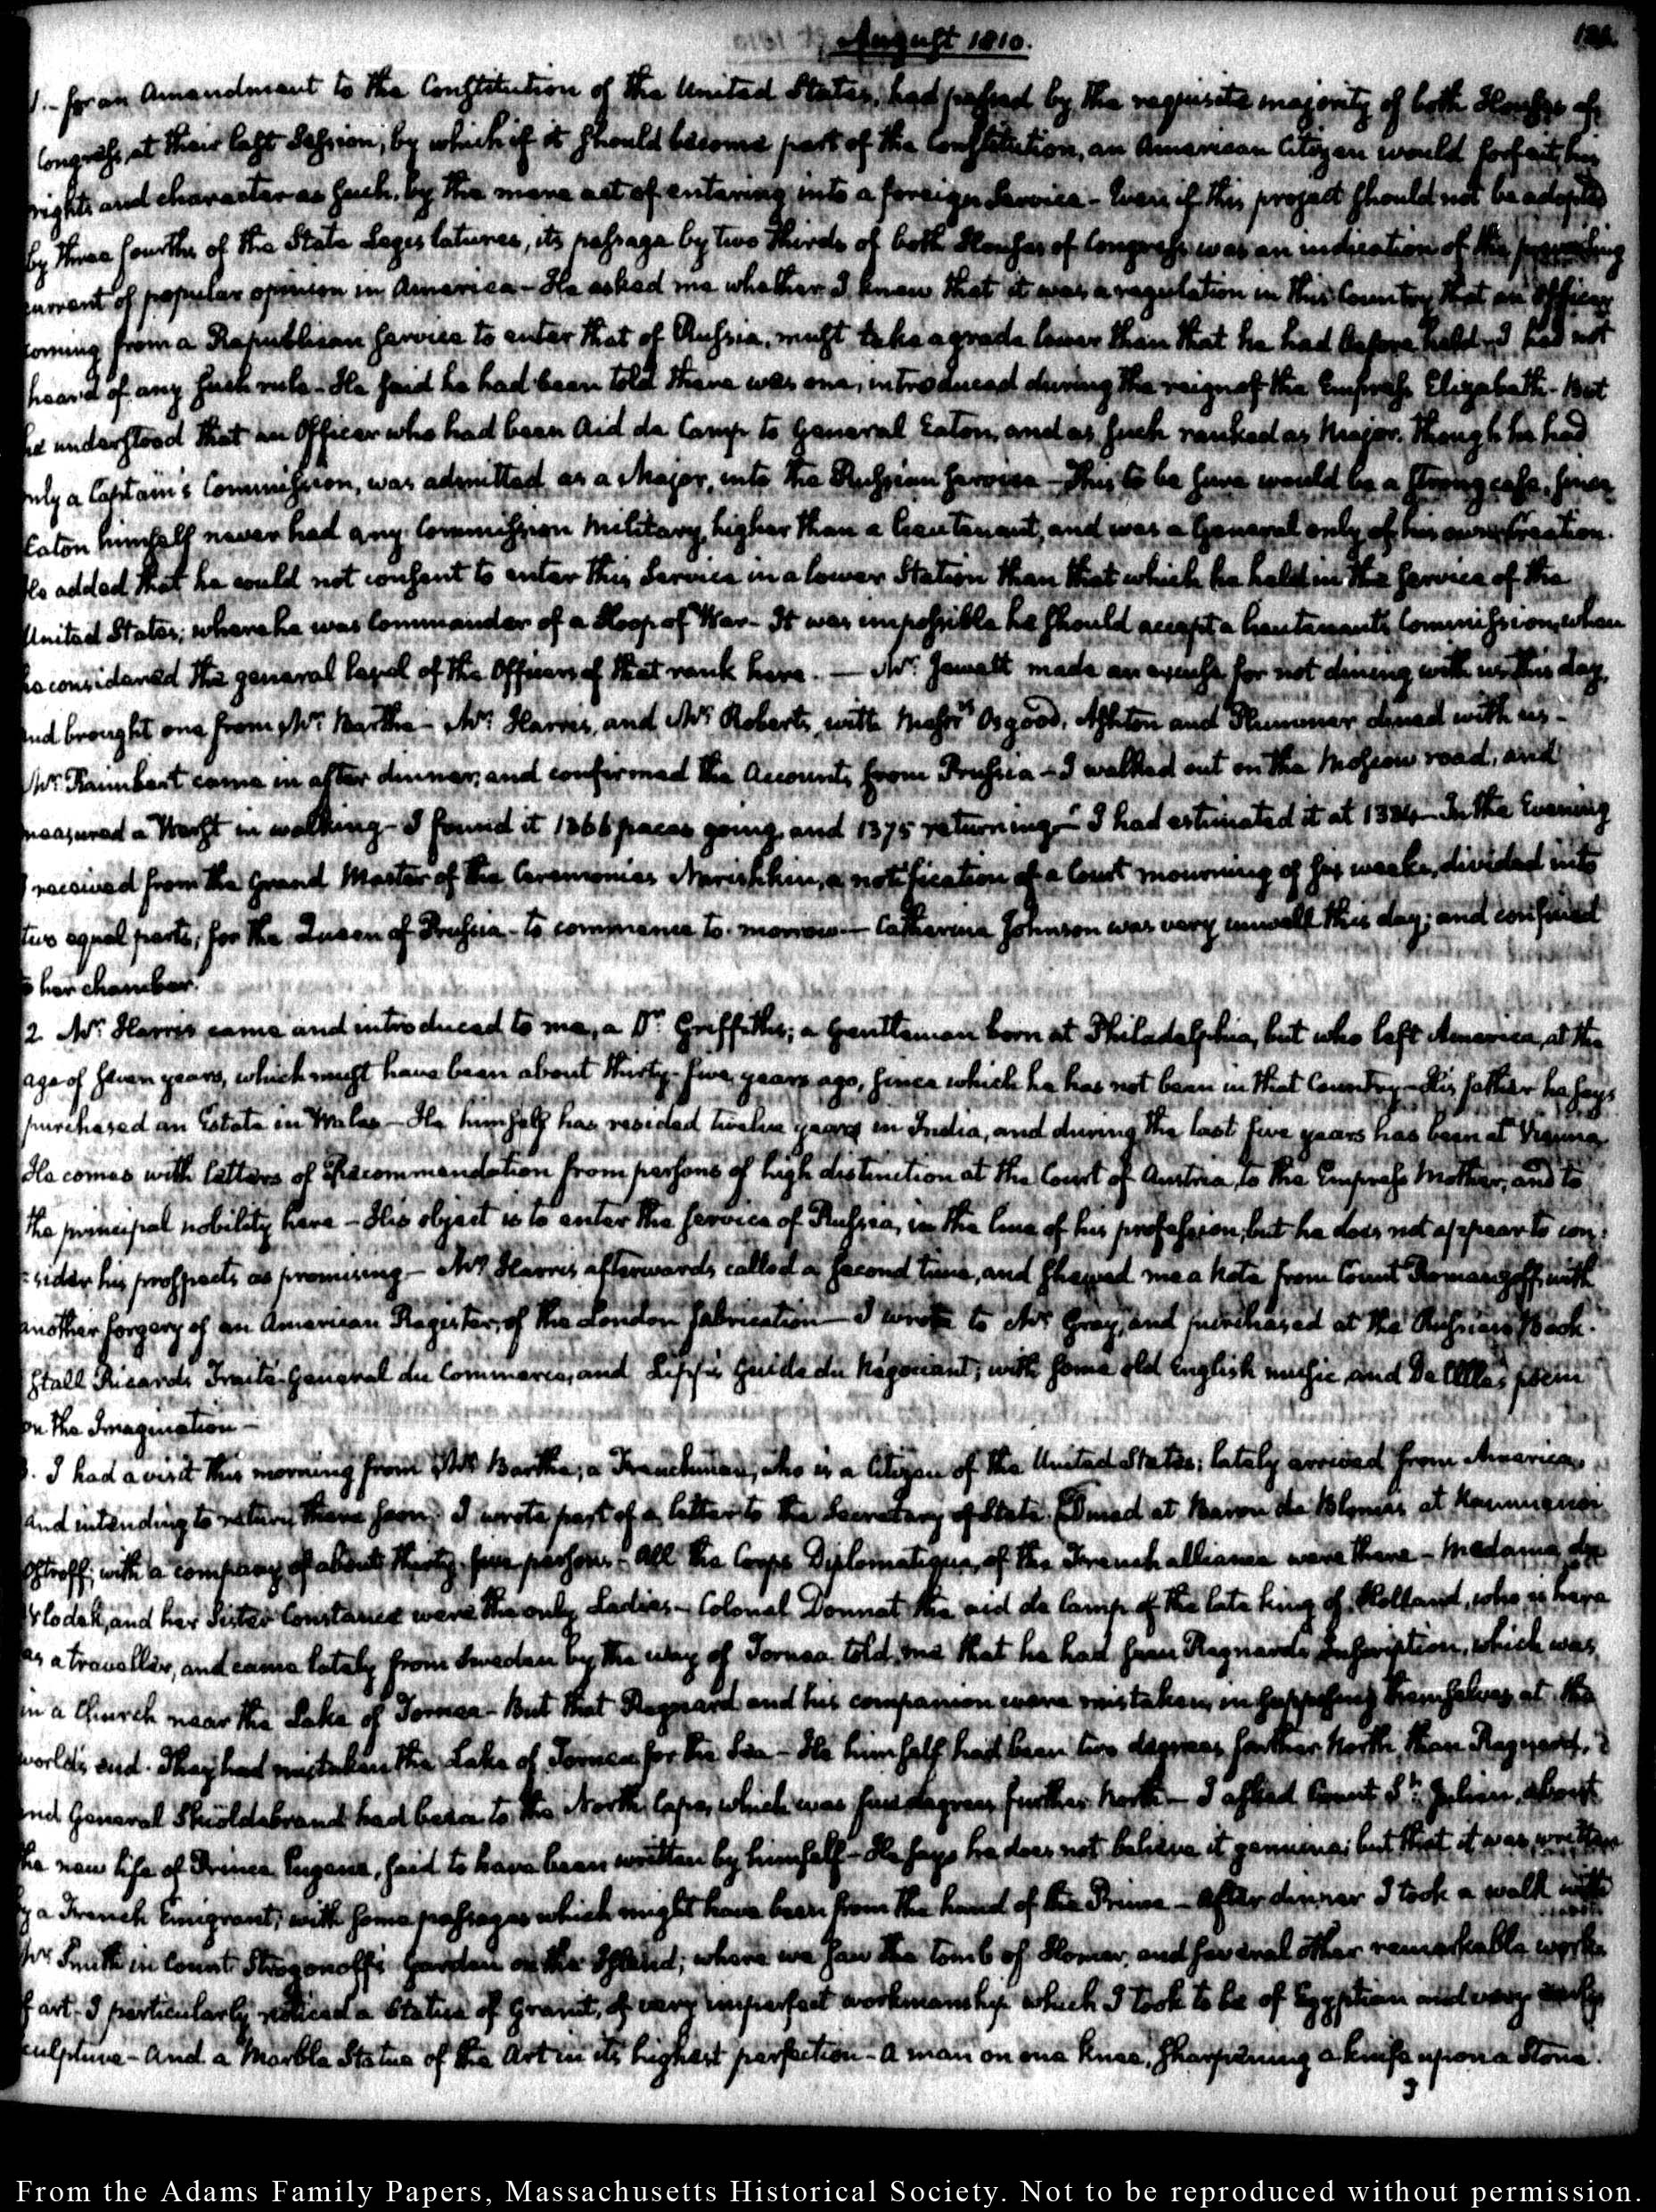 August 1810.
1.- for an Amendment to the Constitution of the United States, had passed by the requisite majority of both Houses of
Congress, at their last Session; by which if it should become part of the Constitution, an American Citizen would forfeit his
rights and character as such, by the mere act of entering into a foreign Service - Even if this project should not be adopted
by three fourths of the State Legislatures, its passage by two thirds of both Houses of Congress was an indication of the prevailing
current of popular opinion in America - He asked me whether I knew that it was a regulation in this Country that an Officer
coming from a Republican service to enter that of Russia, must take a grade lower than that he had before held - I had not
heard of any such rule - He said he had been told there was one, introduced during the reign of the Empress Elizabeth - But
he understood that an Officer who had been Aid de Camp to General Eaton, and as such ranked as Major, though he had
only a Captain's Commission, was admitted as a Major, into the Russian service - This to be sure would be a strong case, since
Eaton himself never had any Commission Military, higher than a lieutenant, and was a General only of his own Creation.
He added that he could not consent to enter this Service in a lower Station than that which he held in the service of the
United States; where he was Commander of a Sloop of War - It was impossible he should accept a lieutenant's Commission, when
he considered the general level of the Officers of that rank here. — Mr. Jewett made an excuse for not dining with us this day,
and brought one from Mr. Barthe - Mr. Harris, and Mr. Roberts, with Messrs Osgood, Ashton and Plummer dined with us -
Mr. Raimbert came in after dinner; and confirmed the Accounts from Prussia - I walked out on the Moscow road, and
measured a Werst in walking - I found it 1366 paces going, and 1375 returning - I had estimated it at 1334 - In the Evening
I received from the Grand Master of the Ceremonies Narishkin, a notification of a Court mourning of six weeks, divided into
two equal parts; for the Queen of Prussia - to commence to-morrow — Catherine Johnson was very unwell this day; and confined
to her chamber.
2. Mr. Harris came and introduced to me, a Dr. Griffiths; a Gentleman born at Philadelphia, but who left America, at the
age of seven years, which must have been about thirty-five years ago, since which he has not been in that Country - His father he says
purchased an Estate in Wales - He himself has resided twelve years in India, and during the last five years has been at Vienna
He comes with letters of Recommendation from persons of high distinction at the Court of Austria, to the Empress Mother, and to
the principal nobility here - His object is to enter the service of Russia, in the line of his profession; but he does not appear to con-
=sider his prospects as promising - Mr. Harris afterwards called a second time, and shewed me a Note from Count Romanzoff, with
another forgery of an American Register, of the London fabrication — I wrote to Mr. Gray, and purchased at the Russian Book-
Stall Ricards Traité General du Commerce, and guide du Négociant; with some old English music, and De Lille's poem
on the Imagination -
3. I had a visit this morning from Mr. Barthe; a Frenchman, who is a Citizen of the United States; lately arrived from America,
and intending to return there soon. I wrote part of a letter to the Secretary of State. Dined at Baron de Blome's at Kammenoi
Ostroff, with a company of about thirty-five persons - All the Corps Diplomatique, of the French alliance were there - Madame de
Vlodek, and her Sister Constance were the only Ladies - Colonel Donnat the aid de Camp of the late king of Holland, who is here
as a traveller, and came lately from Sweden by the way of Tornea told me that he had seen Regnard's Inscription, which was
in a Church near the Lake of Tornea - But that Regnard and his companion were mistaken, in supposing themselves at the
world's end. They had mistaken the Lake of Tornea for the Sea - He himself had been two degrees further North than Regnard,
and General Skiöldebrand had been to the North Cape, which was five degrees further North - I asked Count St. Julien, about
the new life of Prince Eugene, said to have been written by himself - He says he does not believe it genuine; but that it was written
by a French Emigrant; with some passages which might have been from the hand of the Prince - After dinner I took a walk with
Mr. Smith in Count Strogonoff's Garden on the Island; where we saw the tomb of Homer, and several other remarkable works
of art - I particularly noticed a Statue of Granit, of very imperfect workmanship which I took to be of Egyptian and very early
sculpture - And a Marble Statue of the Art in its highest perfection - A man on one knee, sharpening a knife upon a Stone.
From the Adams Family Papers, Massachusetts Historical Society. Not to be reproduced without permission.